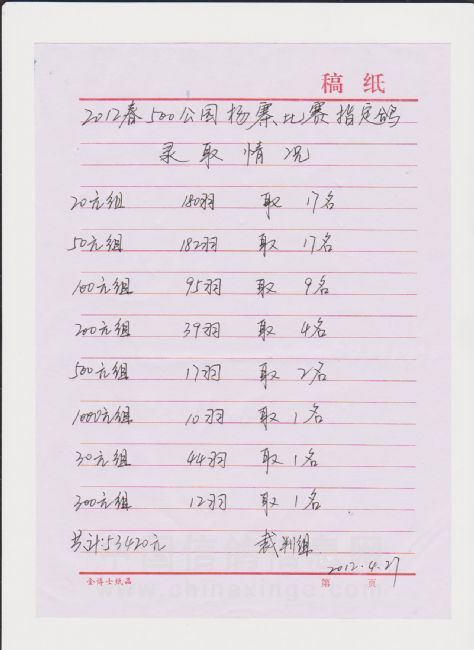 稿 纸
2012春500公 杨寨比赛指定鸽
录取情况
20元组 180羽 取 17名
50元组 182羽 取 17名
100元组 95羽 取 9名
200元组 39羽 取 4名
500元组 17羽 取 2名
1000元组 10羽 取 1名
30元组 44羽 取 1名
300元组 12羽 取 1名
共计:53420元 裁判组
2012.4.27
中国信鸽信息网
金博士纸品 第 页
www.chinaxinge.com